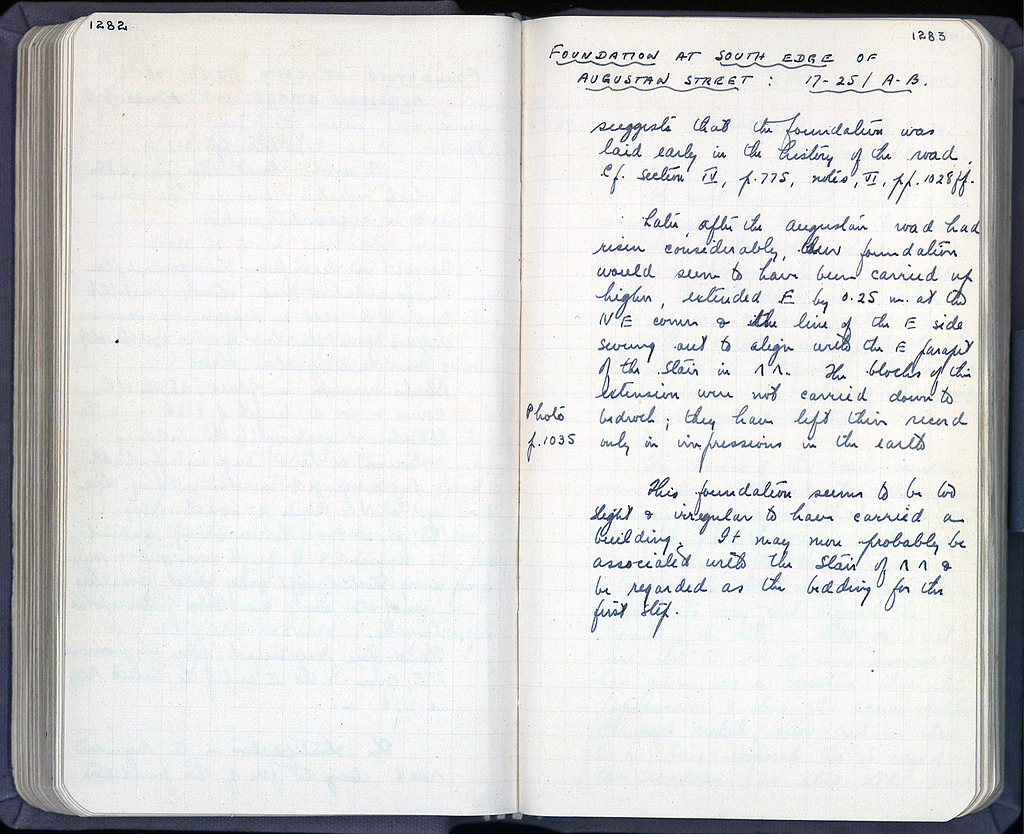 1282
1283
FOUNDATION AT SOUTH EDGE OF
AUGUSTAN STREET : 17-25/A-B.
suggests that the foundation was
laid early in the history of the road.
Cf. section IV, p.775, notes, VI, pp.1028ff.
Later, after the Augustan road had
risen considerably, foundation
would seem to have been carried up
higher, extended E by 0.25 m. at the
NE corner & the line of the E side
swung out to align with the E parapet
of the Stair in ΛΛ. The blocks of this
extension were not carried down to
bedrock; they have left their record
only in impressions in the earth
Photo
p.1035
This foundation seems to be too
slight & irregular to have carried a
building. It may more probably be
associated with the Stair of ΛΛ &
be regarded as the bedding for the
first step.